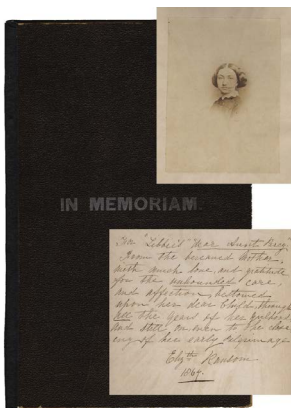 IN MEMORIAM
For "Libbie's" "Dear Aunt
From the bereaved Mother,
with much love, and gratitude
for the unbounded care,
and affection, bestowed
upon her dear Child through
all the years of her
and still on, even to the clos-
ing of her early pilgrimage
Elizth Ransom
1869.